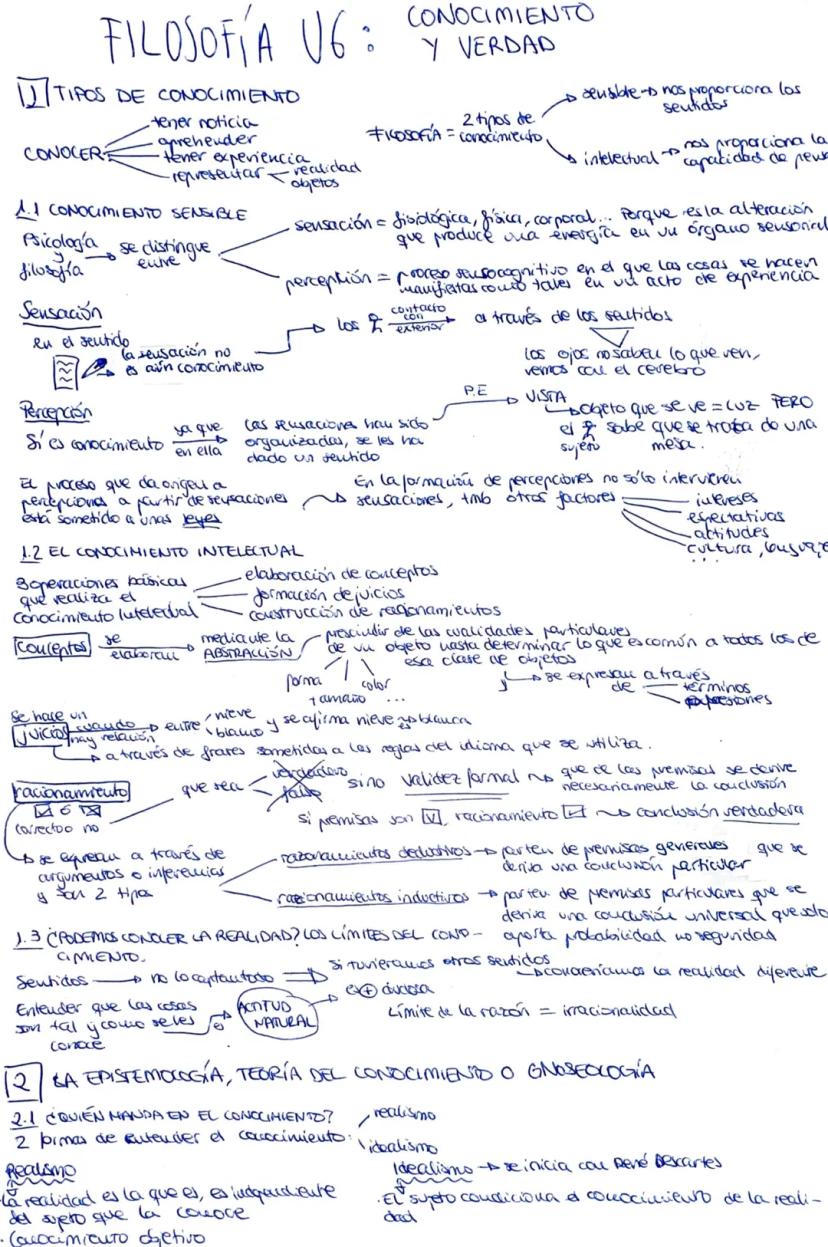 FILOSOFÍA U6: CONOCIMIENTO
Y VERDAD
1 TIPOS DE CONOCIMIENTO
CONOCER
tener noticia
aprehender
tener experiencia
representar
realidad
objetos
FILOSOFÍA = 2 tipos de
conocimiento
sensible → nos proporciona los
sentidos
intelectual → nos proporciona la
capacidad de
1.1 CONOCIMIENTO SENSIBLE
Psicología
y
filosofía → se distingue
entre
sensación = fisiológica, física, corporal... Porque es la alteración
que produce una energía en un órgano sensorial
percepción = proceso sensocognitivo en el que las cosas se hacen
manifiestas como tales en un acto de experiencia
Sensación
en el sentido
la sensación no
es aún conocimiento
los contacto
con
exterior → a través de los sentidos
los ojos no saben lo que ven,
vemos con el cerebro
Percepción
Sí es conocimiento ya que
en ella → las sensaciones han sido
organizadas, se les ha
dado un sentido
P.E → VISTA
objeto que se ve = LUZ PERO
el sabe que se trata de una
sujeto mesa.
El proceso que da origen a
percepciones a partir de sensaciones
está sometido a unas leyes
En la formación de percepciones no sólo intervienen
sensaciones, tmb otros factores
intereses
espectativas
actitudes
cultura,
...
1.2 EL CONOCIMIENTO INTELECTUAL
3 operaciones básicas
que realiza el
conocimiento intelectual
elaboración de conceptos
formación de juicios
construcción de razonamientos
Conceptos se
elaboran → mediante la
ABSTRACCIÓN
prescindir de las cualidades particulares
de un objeto hasta determinar lo que es común a todos los de
esa clase de objetos
forma
tamaño
color
...
se expresan a través
de
términos
expresiones
se hace un
juicio cuando
hay relación → entre nieve
blanco y se afirma nieve es blanca
a través de frases sometidas a las reglas del idioma que se utiliza.
racionamiento
☑ ó ☒
correcto o no
que sea
verdadero
falso
sino validez formal → que de las premisas se derive
necesariamente la conclusión
si premisas son V, racionamiento ☑ → conclusión verdadera
se expresan a través de
argumentos o inferencias
y son 2 tipos
razonamientos deductivos → parten de premisas generales que se
deriva una conclusión particular
razionamientos inductivos → parten de premisas particulares que se
deriva una conclusión universal que solo
aporta probabilidad no seguridad
1.3 ¿PODEMOS CONOCER LA REALIDAD? LOS LÍMITES DEL CONO-
CIMIENTO.
Sentidos → no lo captan todo ⇒ si tuvieramos otros sentidos
→ conoceríamos la realidad diferente
Entender que las cosas
son tal y como se les
conoce
es → ACTITUD
NATURAL
Límite de la razón = irracionalidad
2 LA EPISTEMOLOGÍA, TEORÍA DEL CONOCIMIENTO O GNOSEOLOGÍA
2.1 ¿QUIÉN MANDA EN EL CONOCIMIENTO?
2 formas de entender el conocimiento:
realismo
idealismo
Realismo
La realidad es la que es, es independiente
del sujeto que la conoce
· Conocimiento objetivo
Idealismo → se inicia con René Descartes
· El sujeto condiciona el conocimiento de la reali-
dad